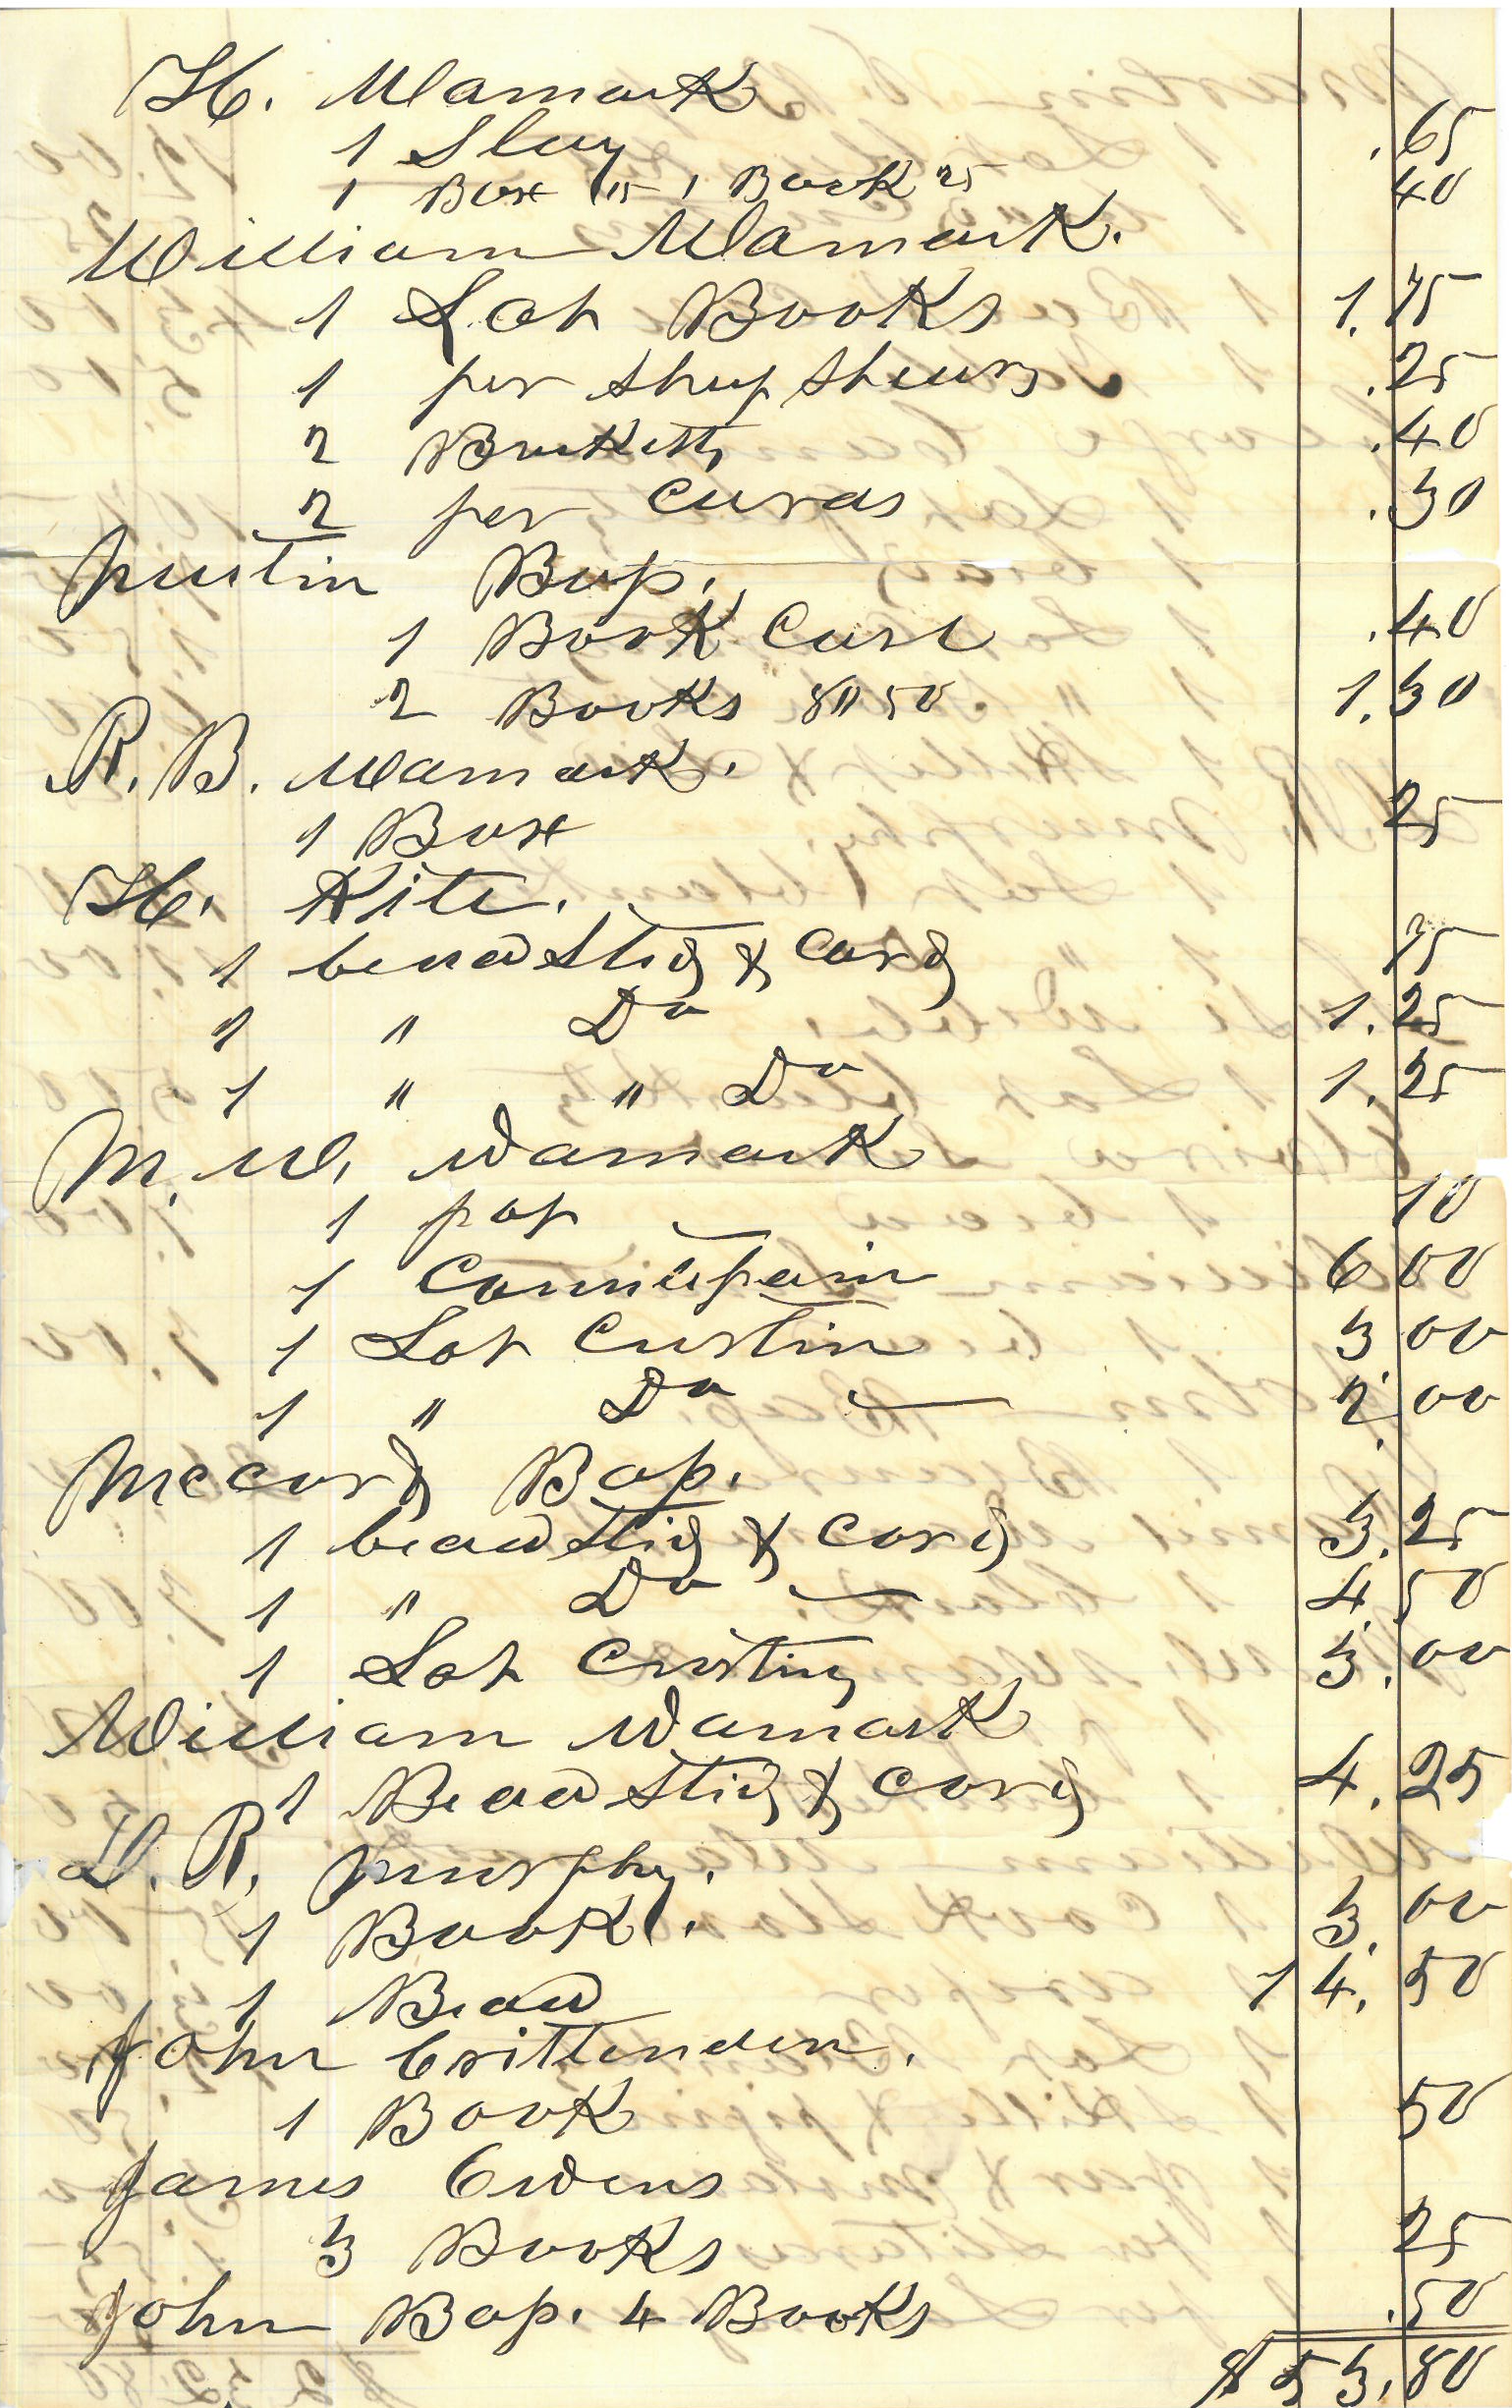 H. Wamack
1 Slay .65
1 Box 15 1 Book 25 40
William Wamack.
1 Lot Books 1.75
1 per Shep Shears .25
2 Bracketts .40
2 per Curds .30
Austin Bap.
1 Book Case .40
2 Books 80 50 1.30
R. B. Wamack.
1 Box 25
H. Kite.
1 beadstid & Cord 75
1 " Do 1.25
1 " " Do 1.25
M. W. Wamack
1 pot 10
1 Countipain 6 00
1 Lot Custin 3 00
1 " Do 2.00
Mccord Bap.
1 beadstid & cord 3.25
1 " Do 4.50
1 Lot Custing 3.00
William Wamack
1 Beadstid & cord 4.25
D. R. Murphy.
1 Book. 3.00
1 Bead 14.50
John Crittenden.
1 Book 50
James Owens
3 Books 25
John Bap. 4 Books .50
$53.80